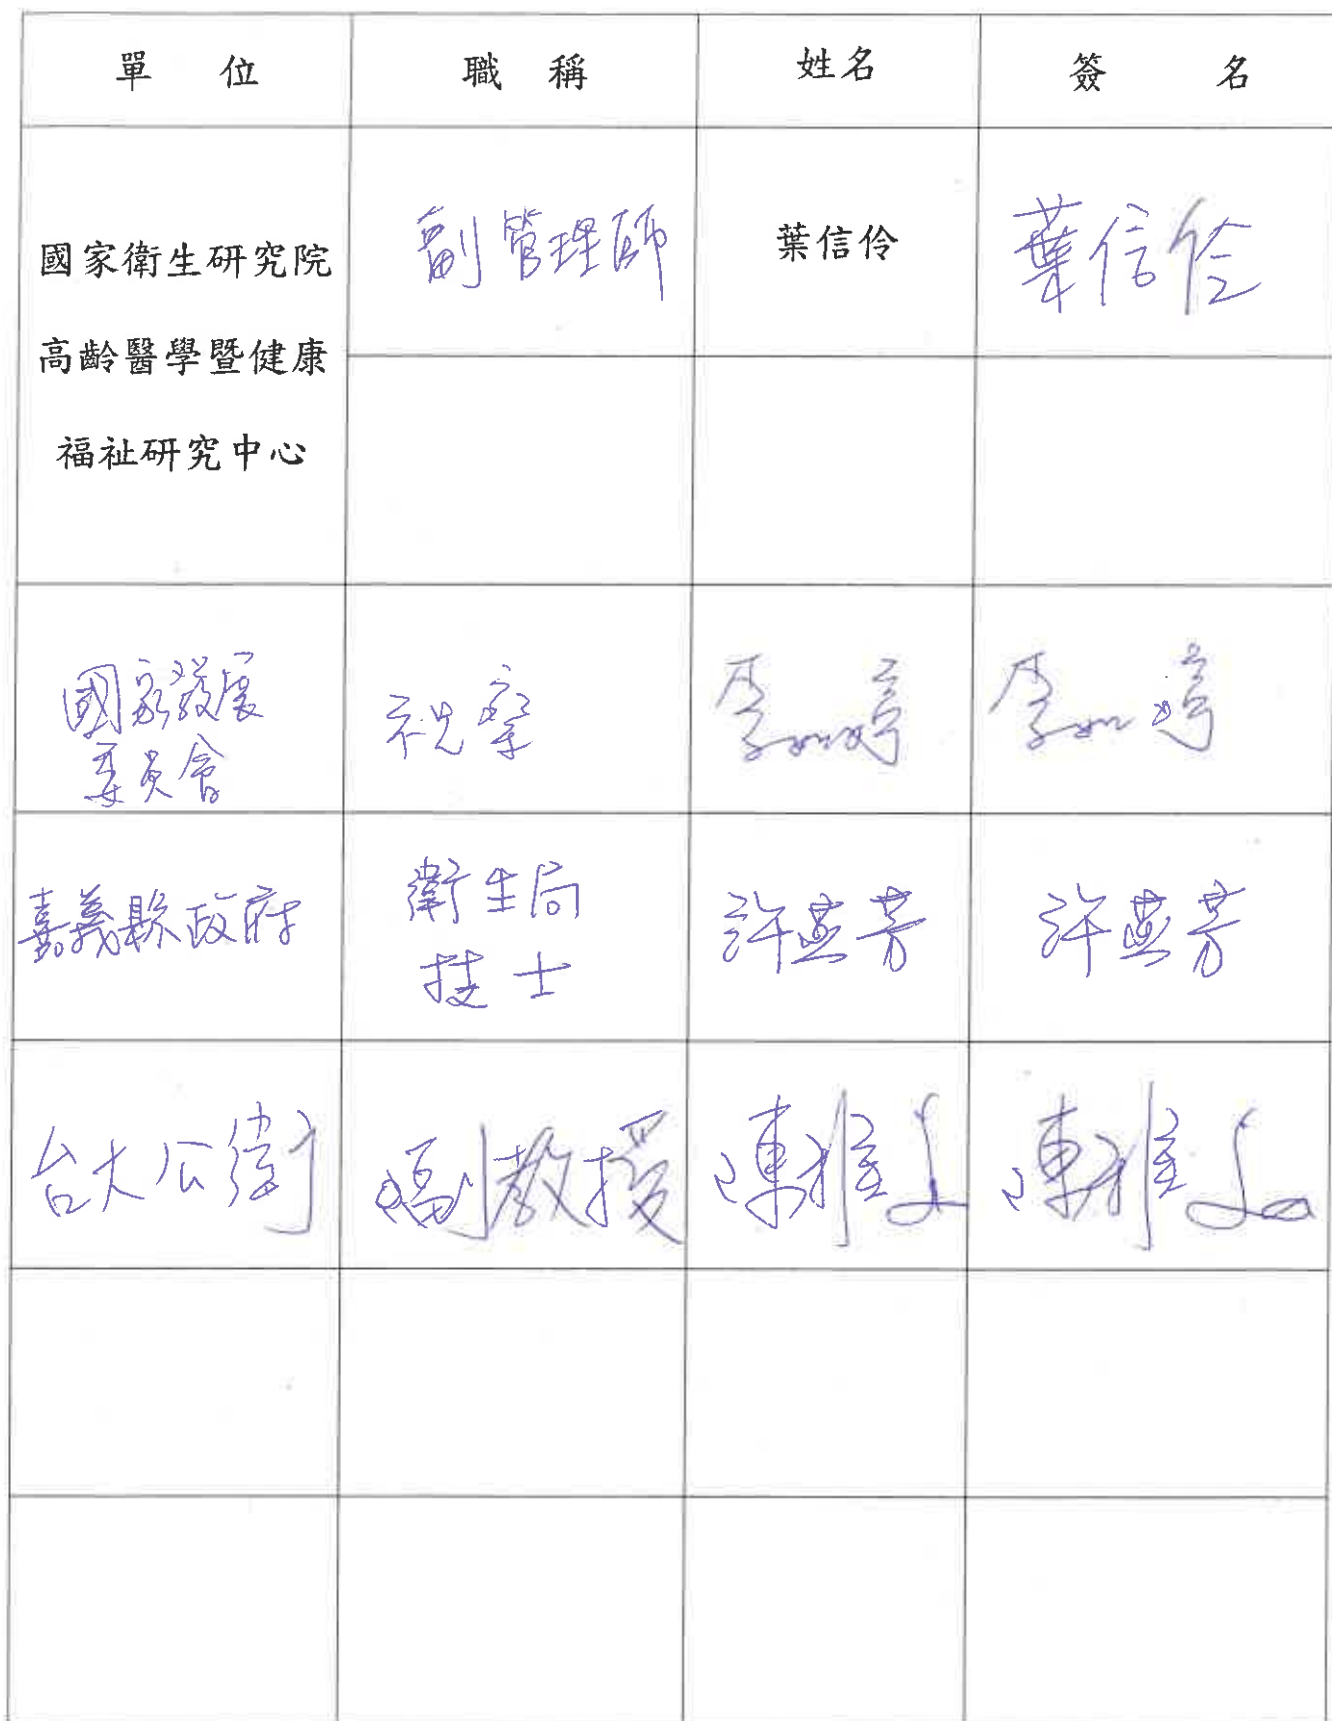 單 位 職 稱 姓名 簽 名
國家衛生研究院
高齡醫學暨健康
福祉研究中心
副管理師 葉信伶 葉信伶
國家發展
委員會
視察 李如婷 李如婷
嘉義縣政府
衛生局
技士
許燕芳 許燕芳
台大公衛 副教授 陳雅文 陳雅文